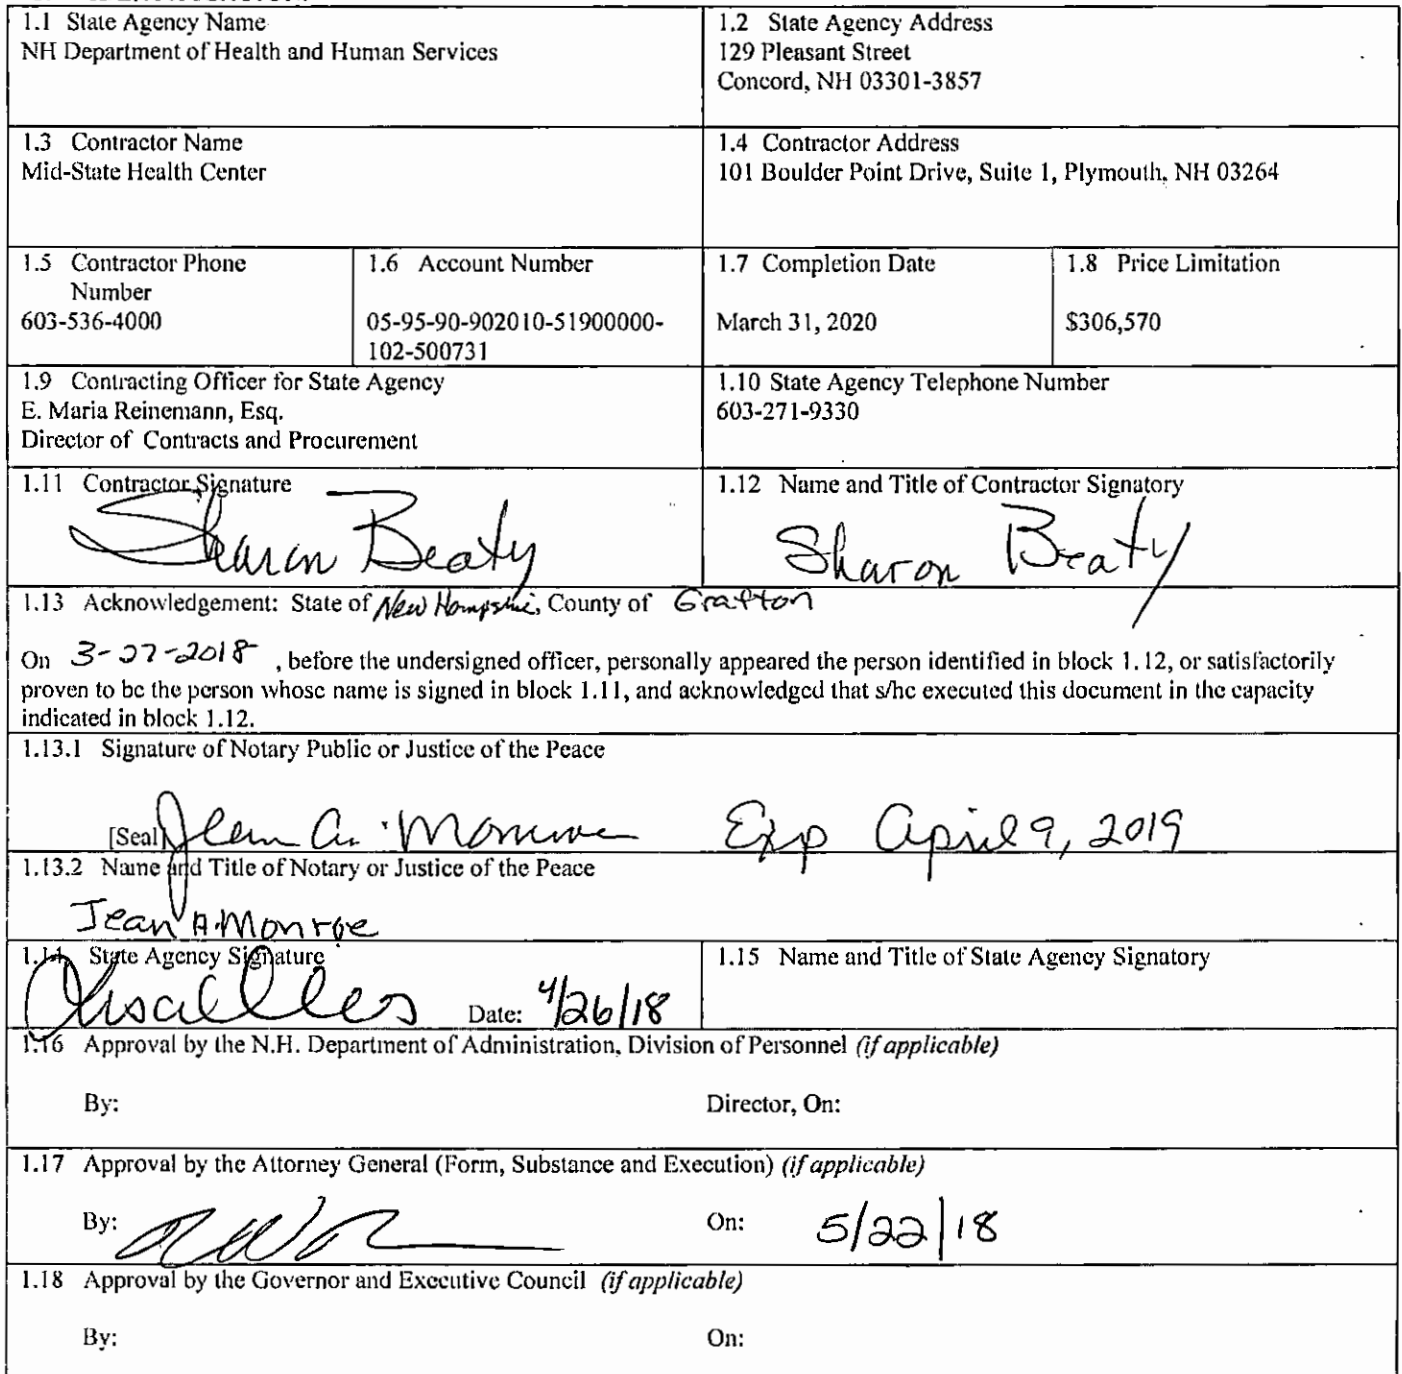 1.1 State Agency Name
NH Department of Health and Human Services
1.2 State Agency Address
129 Pleasant Street
Concord, NH 03301-3857
1.3 Contractor Name
Mid-State Health Center
1.4 Contractor Address
101 Boulder Point Drive, Suite 1, Plymouth, NH 03264
1.5 Contractor Phone
Number
603-536-4000
1.6 Account Number
05-95-90-902010-51900000-
102-500731
1.7 Completion Date
March 31, 2020
1.8 Price Limitation
$306,570
1.9 Contracting Officer for State Agency
E. Maria Reinemann, Esq.
Director of Contracts and Procurement
1.10 State Agency Telephone Number
603-271-9330
1.11 Contractor Signature
Sharon Beaty
1.12 Name and Title of Contractor Signatory
Sharon Beaty
1.13 Acknowledgement: State of New Hampshire, County of Grafton
On 3-27-2018 , before the undersigned officer, personally appeared the person identified in block 1.12, or satisfactorily
proven to be the person whose name is signed in block 1.11, and acknowledged that s/he executed this document in the capacity
indicated in block 1.12.
1.13.1 Signature of Notary Public or Justice of the Peace
[Seal] Jean A. Monroe Exp April 9, 2019
1.13.2 Name and Title of Notary or Justice of the Peace
Jean A. Monroe
1.14 State Agency Signature
Date: 4/26/18
1.15 Name and Title of State Agency Signatory
1.16 Approval by the N.H. Department of Administration, Division of Personnel (if applicable)
By:
Director, On:
1.17 Approval by the Attorney General (Form, Substance and Execution) (if applicable)
By:
On: 5/22/18
1.18 Approval by the Governor and Executive Council (if applicable)
By:
On: